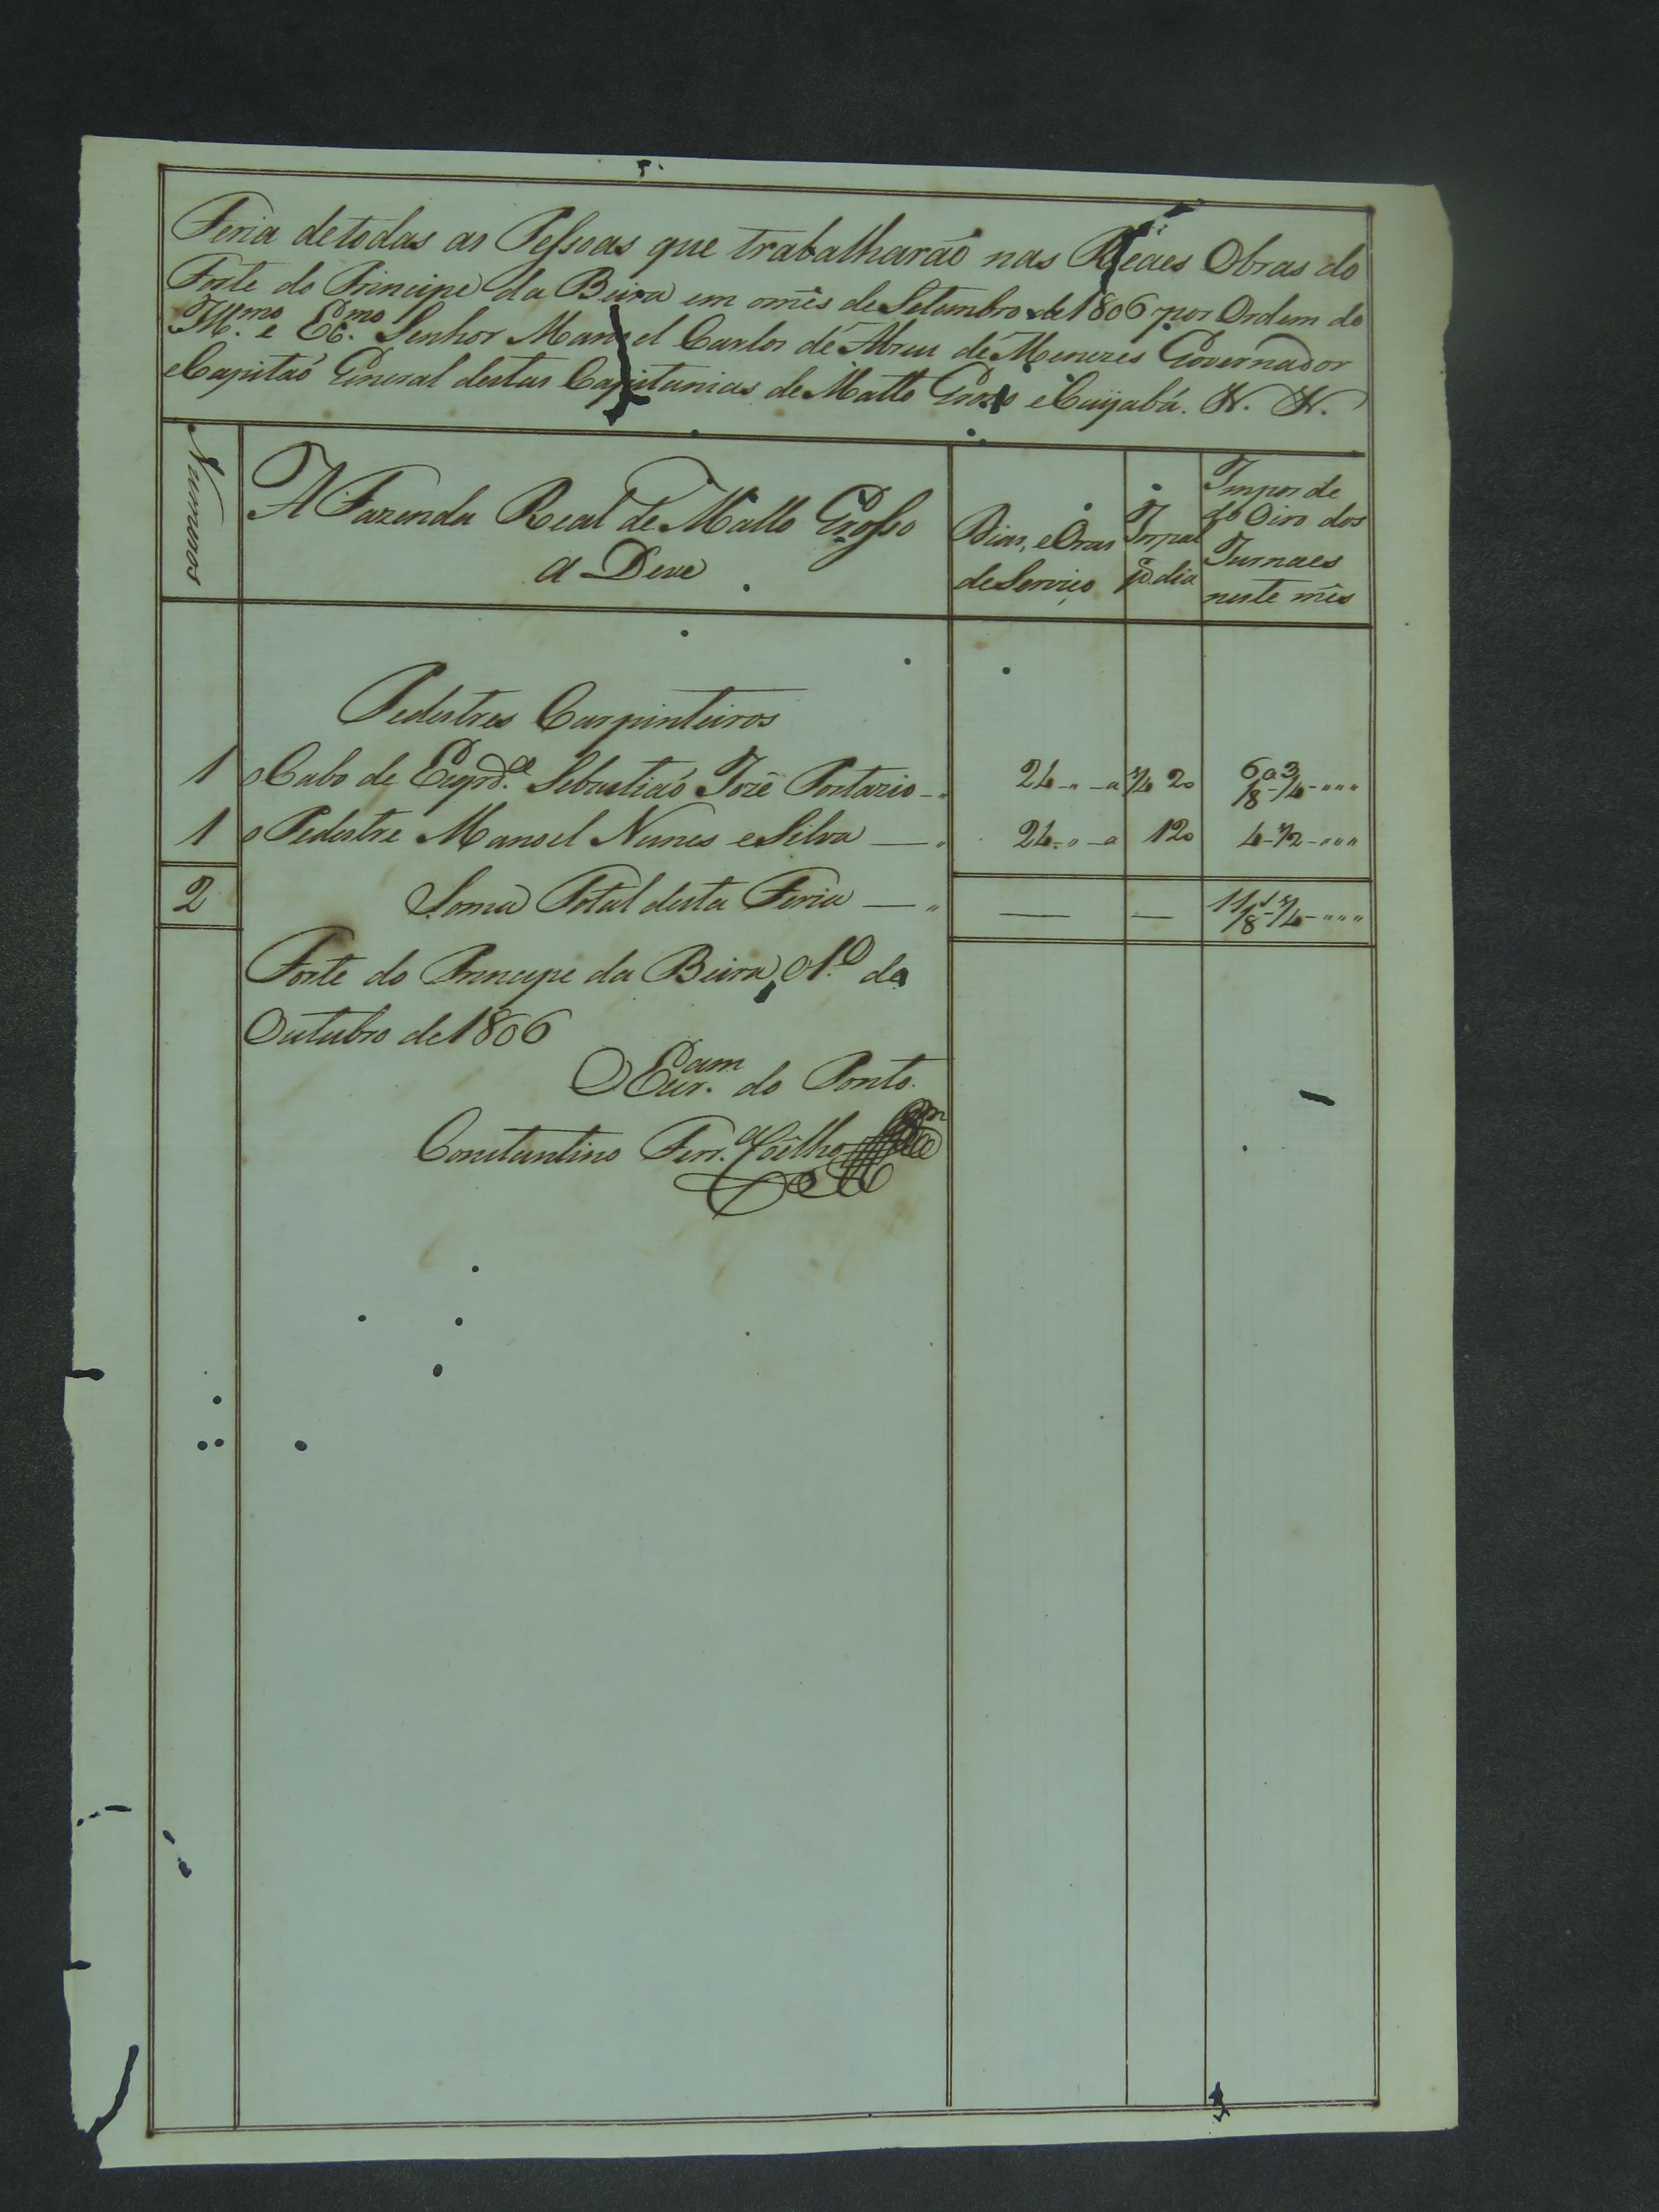 Feria de todas as Pessoas que trabalharaõ nas Reaes Obras do
Forte do Principe da Beira em omês de Setembro de 1806 por Ordem do
Ill.mo e Ex.mo Senhor Manoel Carlos de Abreu de Menezes Governador
eCapitaõ General destas Capitanias de Matto Grosso eCuyabá. &. &.
Numeros
A Fazenda Real de Matto Grosso
a Deve
Dias, eOras
de Serviço
Jornal
p. dia
Impor de
do Oiro dos
Jurnaes
neste mês
Pedestres Carpinteiros
1 o Cabo de Esqrd.ª Sebastiaõ José 24 - " - a 1/4 20 6/8a - 3/4 - " " "
1 o Pedestre Manoel Nunes eSilva — " 24 - " - a 120 4 - 1/2 - " " "
2 Soma Total desta Feria — " — — 11/8 - 1/4 - " " "
Forte do Principe da Beira, o 1.º de
Outubro de 1806
O do Ponto.
Constantino Ferr.ª Coêlho